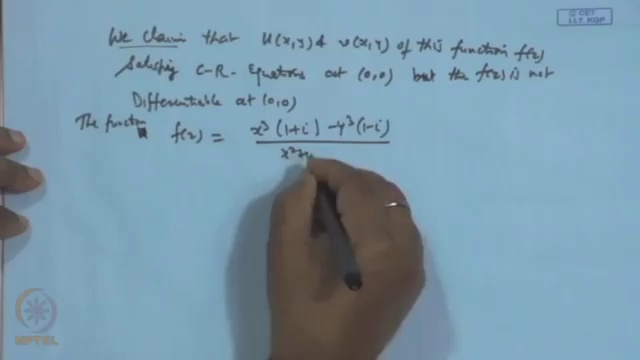 © CET
I.I.T. KGP
We claim that u(x,y) & v(x,y) of this function f(z)
Satisfying C-R- Equations at (0,0) but the f(z) is not
Differentiable at (0,0)
The function f(z) = x³ (1+i) - y³ (1-i)
x²+y
NPTEL